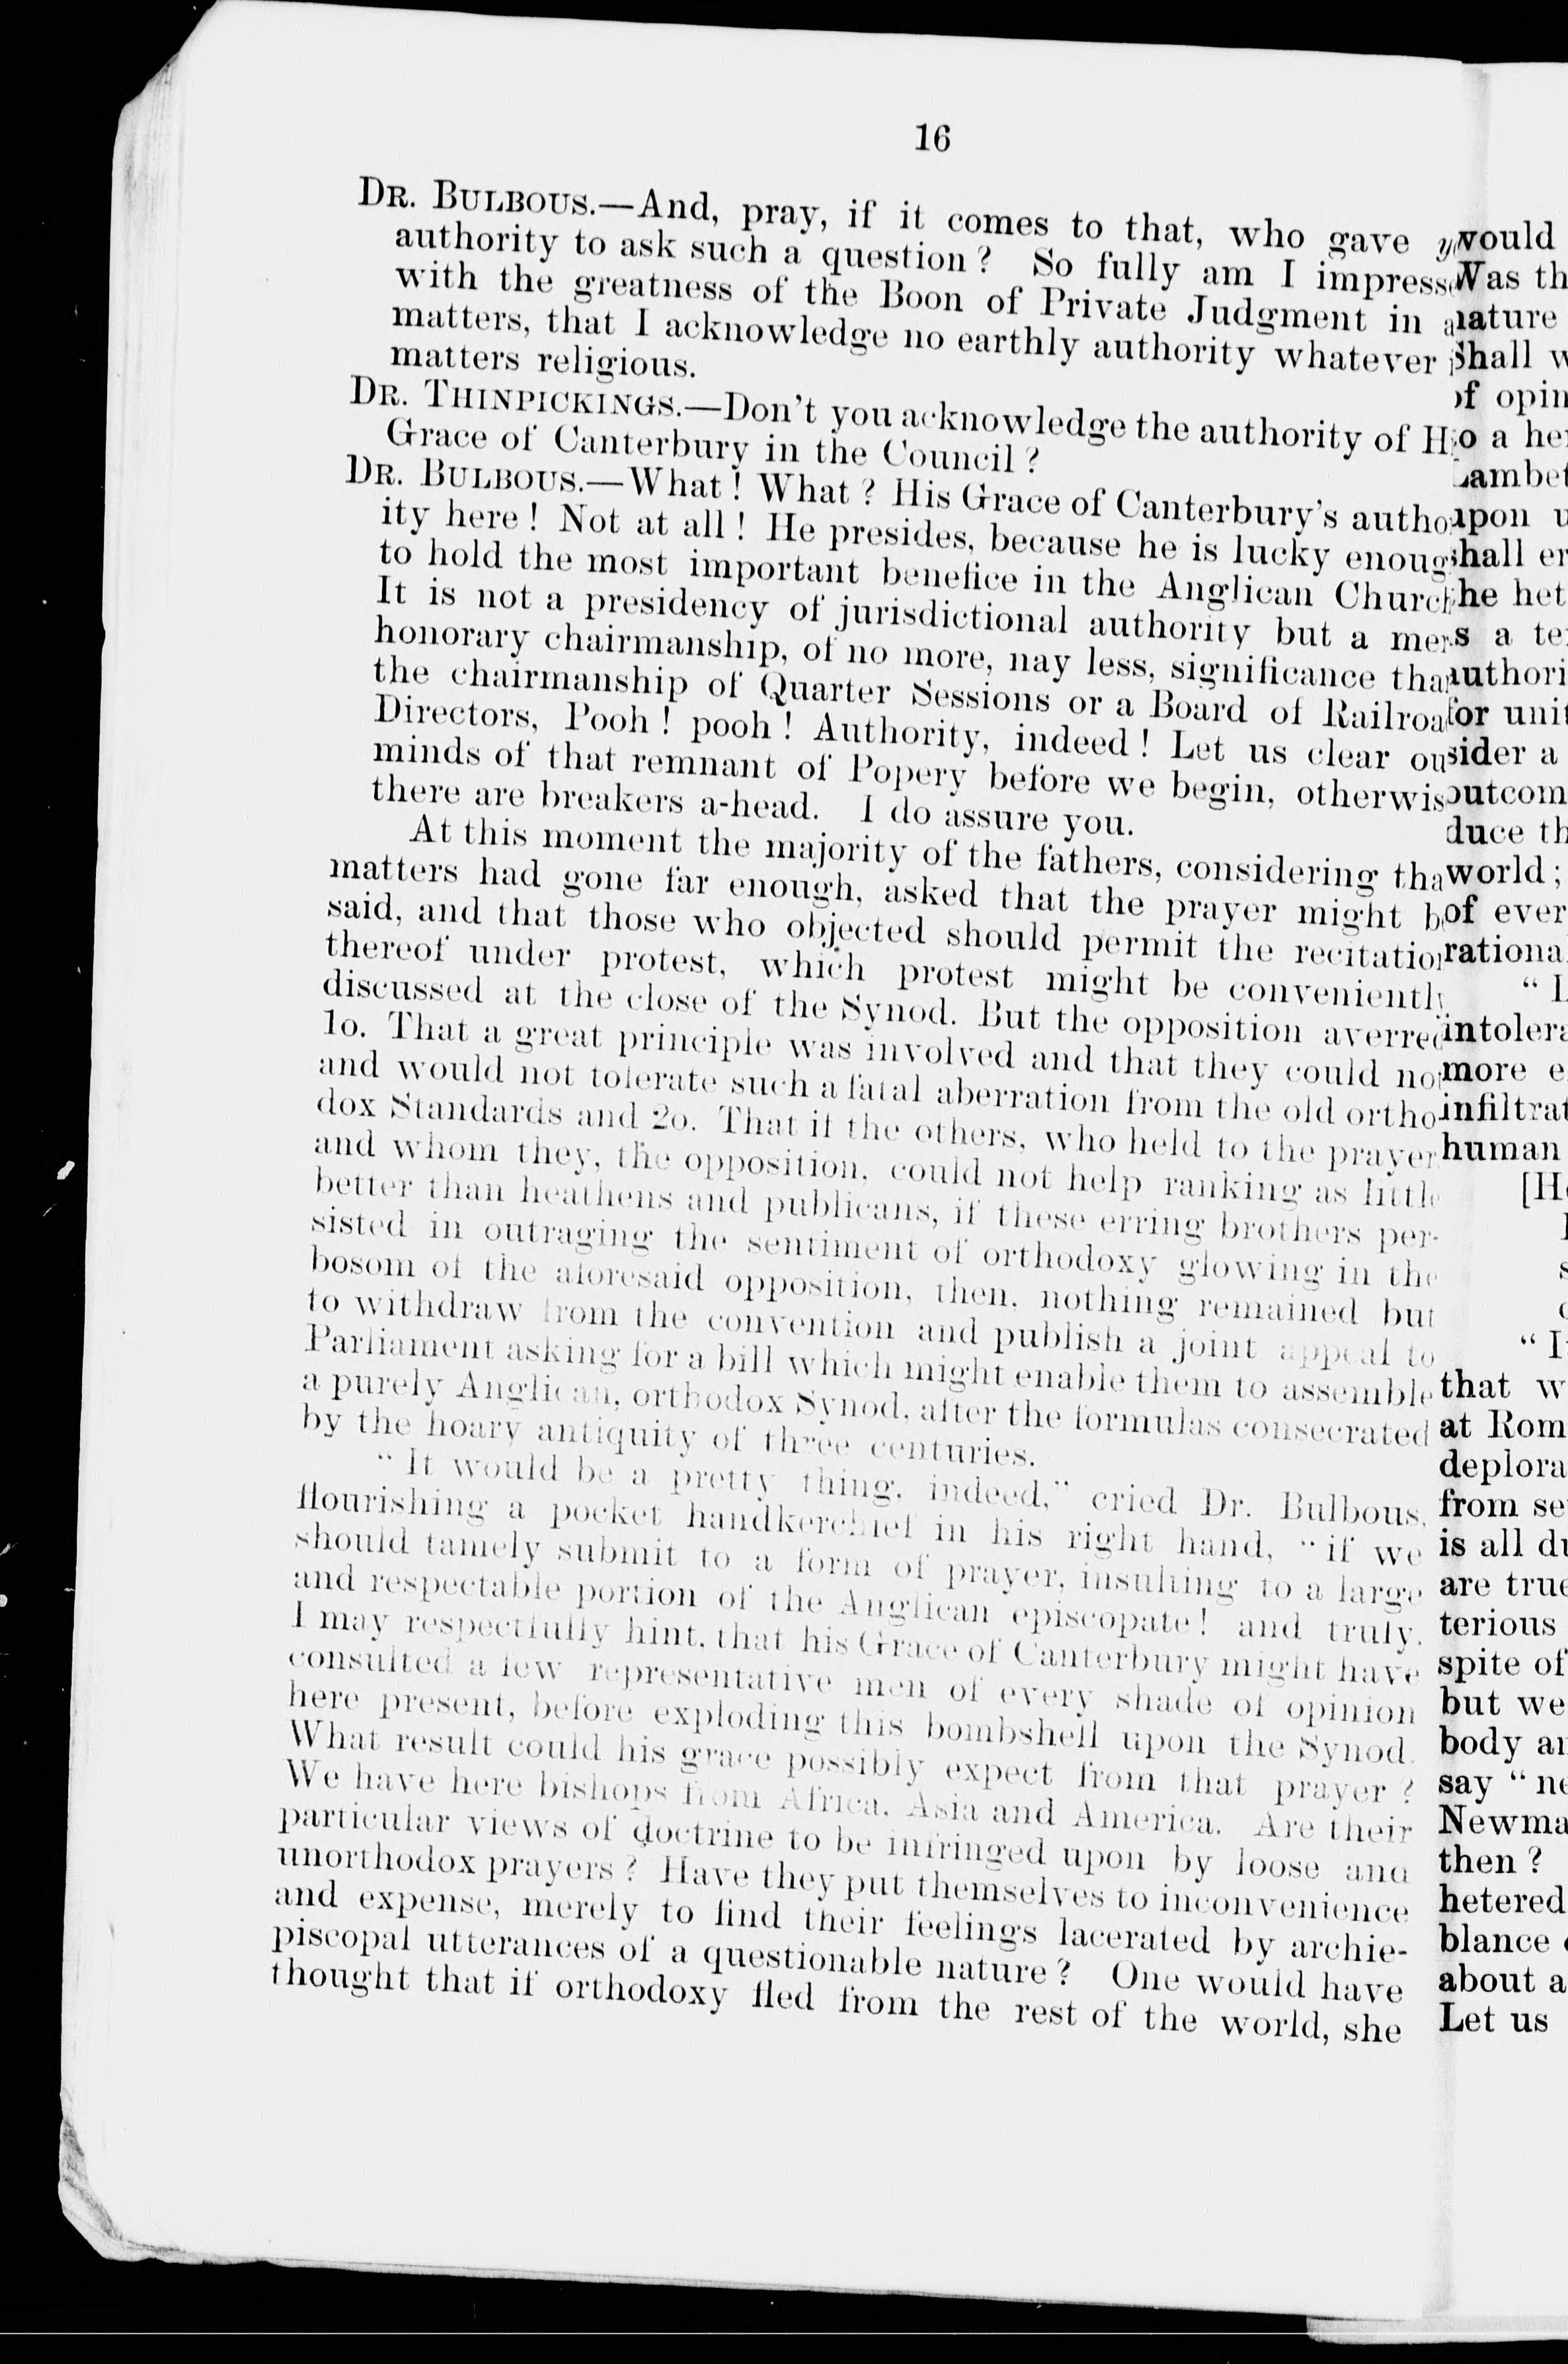 16
DR. BULBOUS.—And, pray, if it comes to that, who gave y
authority to ask such a question ? So fully am I impresse
with the greatness of the Boon of Private Judgment in a
matters, that I acknowledge no earthly authority whatever i
matters religious.
DR. THINPICKINGS.—Don't you acknowledge the authority of Hi
Grace of Canterbury in the Council ?
DR. BULBOUS.—What ! What ? His Grace of Canterbury's author
ity here ! Not at all ! He presides, because he is lucky enoug
to hold the most important benefice in the Anglican Church
It is not a presidency of jurisdictional authority but a mer
honorary chairmanship, of no more, nay less, significance than
the chairmanship of Quarter Sessions or a Board of Railroad
Directors, Pooh ! pooh ! Authority, indeed ! Let us clear ou
minds of that remnant of Popery before we begin, otherwis
there are breakers a-head. I do assure you.
At this moment the majority of the fathers, considering tha
matters had gone far enough, asked that the prayer might b
said, and that those who objected should permit the recitation
thereof under protest, which protest might be conveniently
discussed at the close of the Synod. But the opposition averred
1o. That a great principle was involved and that they could not
and would not tolerate such a fatal aberration from the old ortho
dox Standards and 2o. That if the others, who held to the prayer
and whom they, the opposition, could not help ranking as little
better than heathens and publicans, if these erring brothers per-
sisted in outraging the sentiment of orthodoxy glowing in the
bosom of the aforesaid opposition, then, nothing remained but
to withdraw from the convention and publish a joint appeal to
Parliament asking for a bill which might enable them to assemble
a purely Anglican, orthodox Synod, after the formulas consecrated
by the hoary antiquity of three centuries.
" It would be a pretty thing, indeed," cried Dr. Bulbous,
flourishing a pocket handkerchief in his right hand, " if we
should tamely submit to a form of prayer, insulting to a large
and respectable portion of the Anglican episcopate ! and truly,
I may respectfully hint, that his Grace of Canterbury might have
consulted a few representative men of every shade of opinion
here present, before exploding this bombshell upon the Synod.
What result could his grace possibly expect from that prayer ?
We have here bishops from Africa, Asia and America. Are their
particular views of doctrine to be infringed upon by loose and
unorthodox prayers ? Have they put themselves to inconvenience
and expense, merely to find their feelings lacerated by archie-
piscopal utterances of a questionable nature ? One would have
thought that if orthodoxy fled from the rest of the world, she
would
Was th
nature
Shall w
of opin
o a he
Lambet
upon u
shall er
he het
s a te
authori
for unit
sider a
outcom
duce th
world ;
of ever
rationa
" I
intolera
more e
infiltrat
human
[H
" I
that w
at Rom
deplora
from se
is all du
are true
terious
spite of
but we
body an
say " ne
Newma
then ?
hetered
blance
about a
Let us